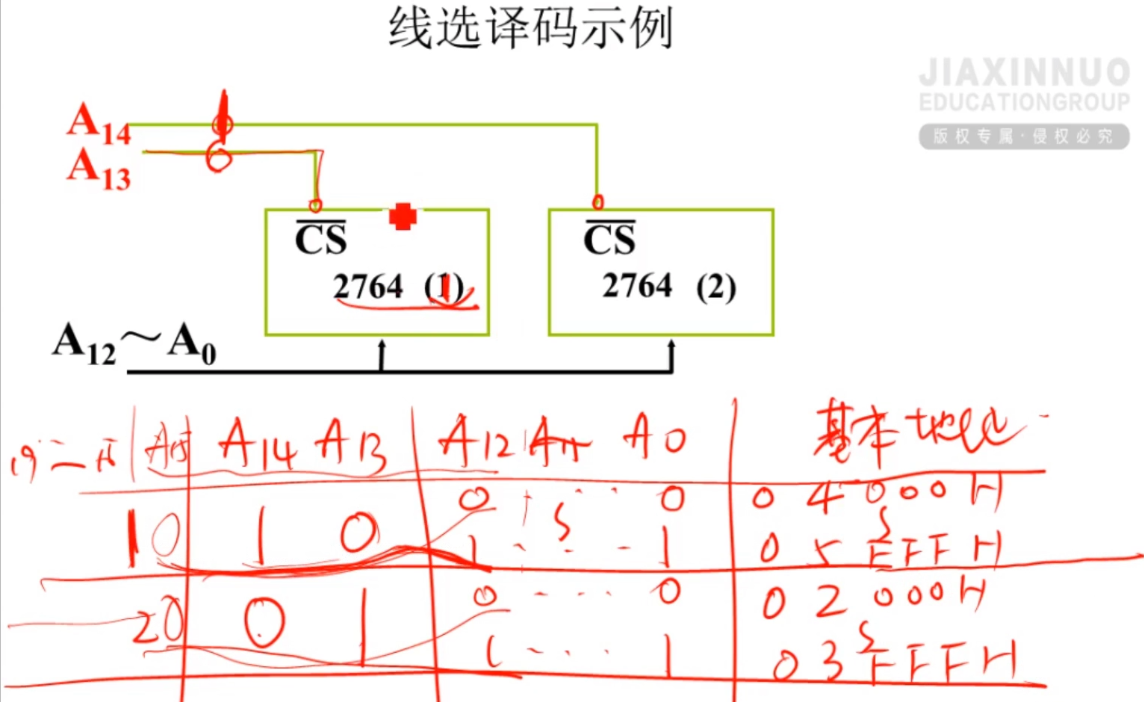 线选译码示例
JIAXINNUO
EDUCATIONGROUP
版权专属·侵权必究
A14
A13
CS
2764 (1)
CS
2764 (2)
A12～A0
A15 A14 A13 A12 A0 基本地址
1 0 1 0 0 ... 0 04000H
1 ... 1 05FFFH
2 0 0 1 0 .... 0 02000H
1 .... 1 03FFFH